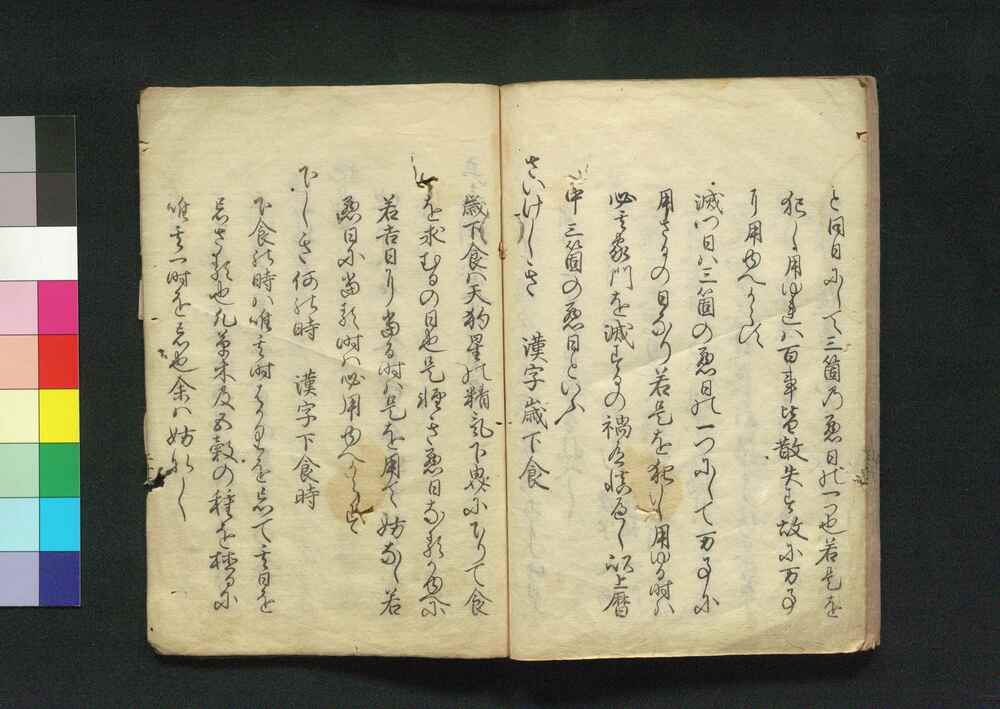 と同日にして三箇の悪日の一つ也若是を
犯し用ゆれハ百事皆散失す故に万事
に用ゆへからす
滅門日ハ三箇の悪日の一つにして万事に
用さるの日なり若是を犯し用ゆる時ハ
必其家門を滅するの禍有
中三箇の悪日といふ
さいけしき 漢字歳下食
歳下食ハ天狗星の精気下界に下りて食
を求むるの日也是軽き悪日なるかゆへに
若吉日に当る時ハ是を用て妨なし若
悪日に当る時ハ必用ゆへからす
下しき何の時 漢字下食時
下食の時ハ唯其時はかりを忌て其日を
忌さる也凡草木及五穀の種を植るに
唯其一時を忌也余ハ妨なし